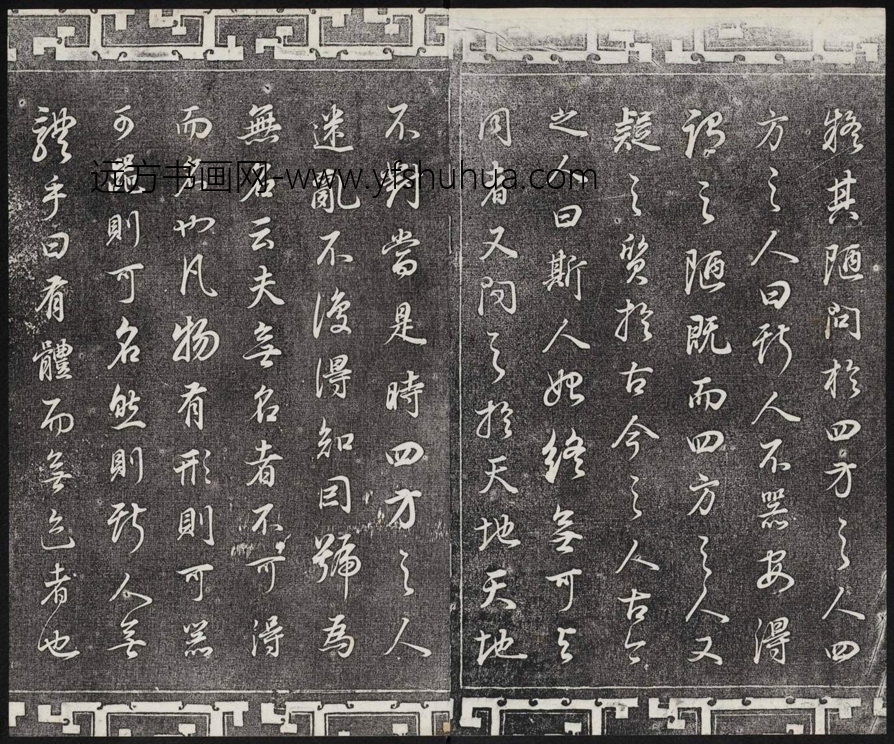 移其陋問於四方之人四
方之人曰斯人不器安得
謂之陋既而四方之人又
疑之質於古今之人古今
之人曰斯人始終無可與
同者又問之於天地天地
不對當是時四方之人
迷亂不復得知因號為
無名云夫無名者不可得
而名也凡物有形則可器
可器則可名然則斯人無
體乎曰有體而無迹者也
远方书画网-www.yfshuhua.com